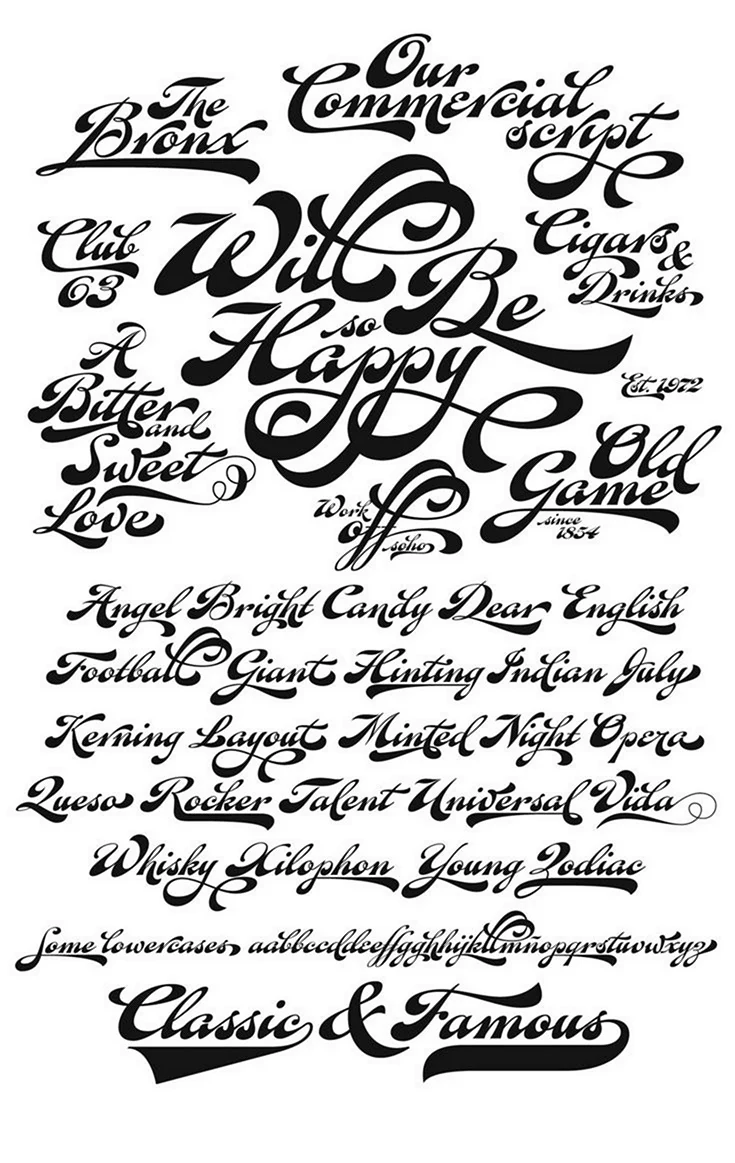 The
Bronx
Our
Commercial
script
Club
63
Will Be
so
Happy
Cigars &
Drinks
Est. 1972
A
Bitter
and
Sweet
Love
Work
Off
soho
Old
Game
since
1854
Angel Bright Candy Dear English
Football Giant Hinting Indian July
Kerning Layout Minted Night Opera
Queso Rocker Talent Universal Vida
Whisky Xilophon Young Zodiac
Some lowercases aabbccddeeffgghhijkllmñopqrstuvwxyz
Classic & Famous